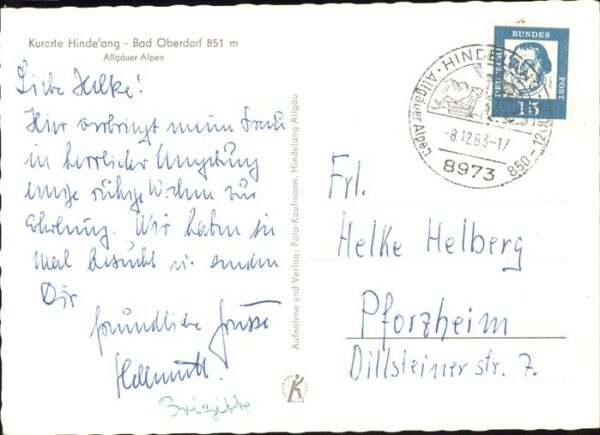 Kurorte Hinde'ang - Bad Oberdorf 851 m
Allgäuer Alpen
Liebe Helke!
Hier verbringt meine Frau
in herrlicher Umgebung
einige ruhige Wochen zur
Erholung. Wir haben sie
mal besucht u. senden
Dir
freundliche Grüsse
Hellmuth.
Brigitte
Aufnahme und Verlag: Foto-Kaufmann, Hindelang Allgäu
DEUTSCHE
BUNDES
POST
15
HINDELANG
Allgäuer Alpen
-8.12.63-17
850-1200
8973
Frl.
Helke Helberg
Pforzheim
Dillsteiner str. 7.
K